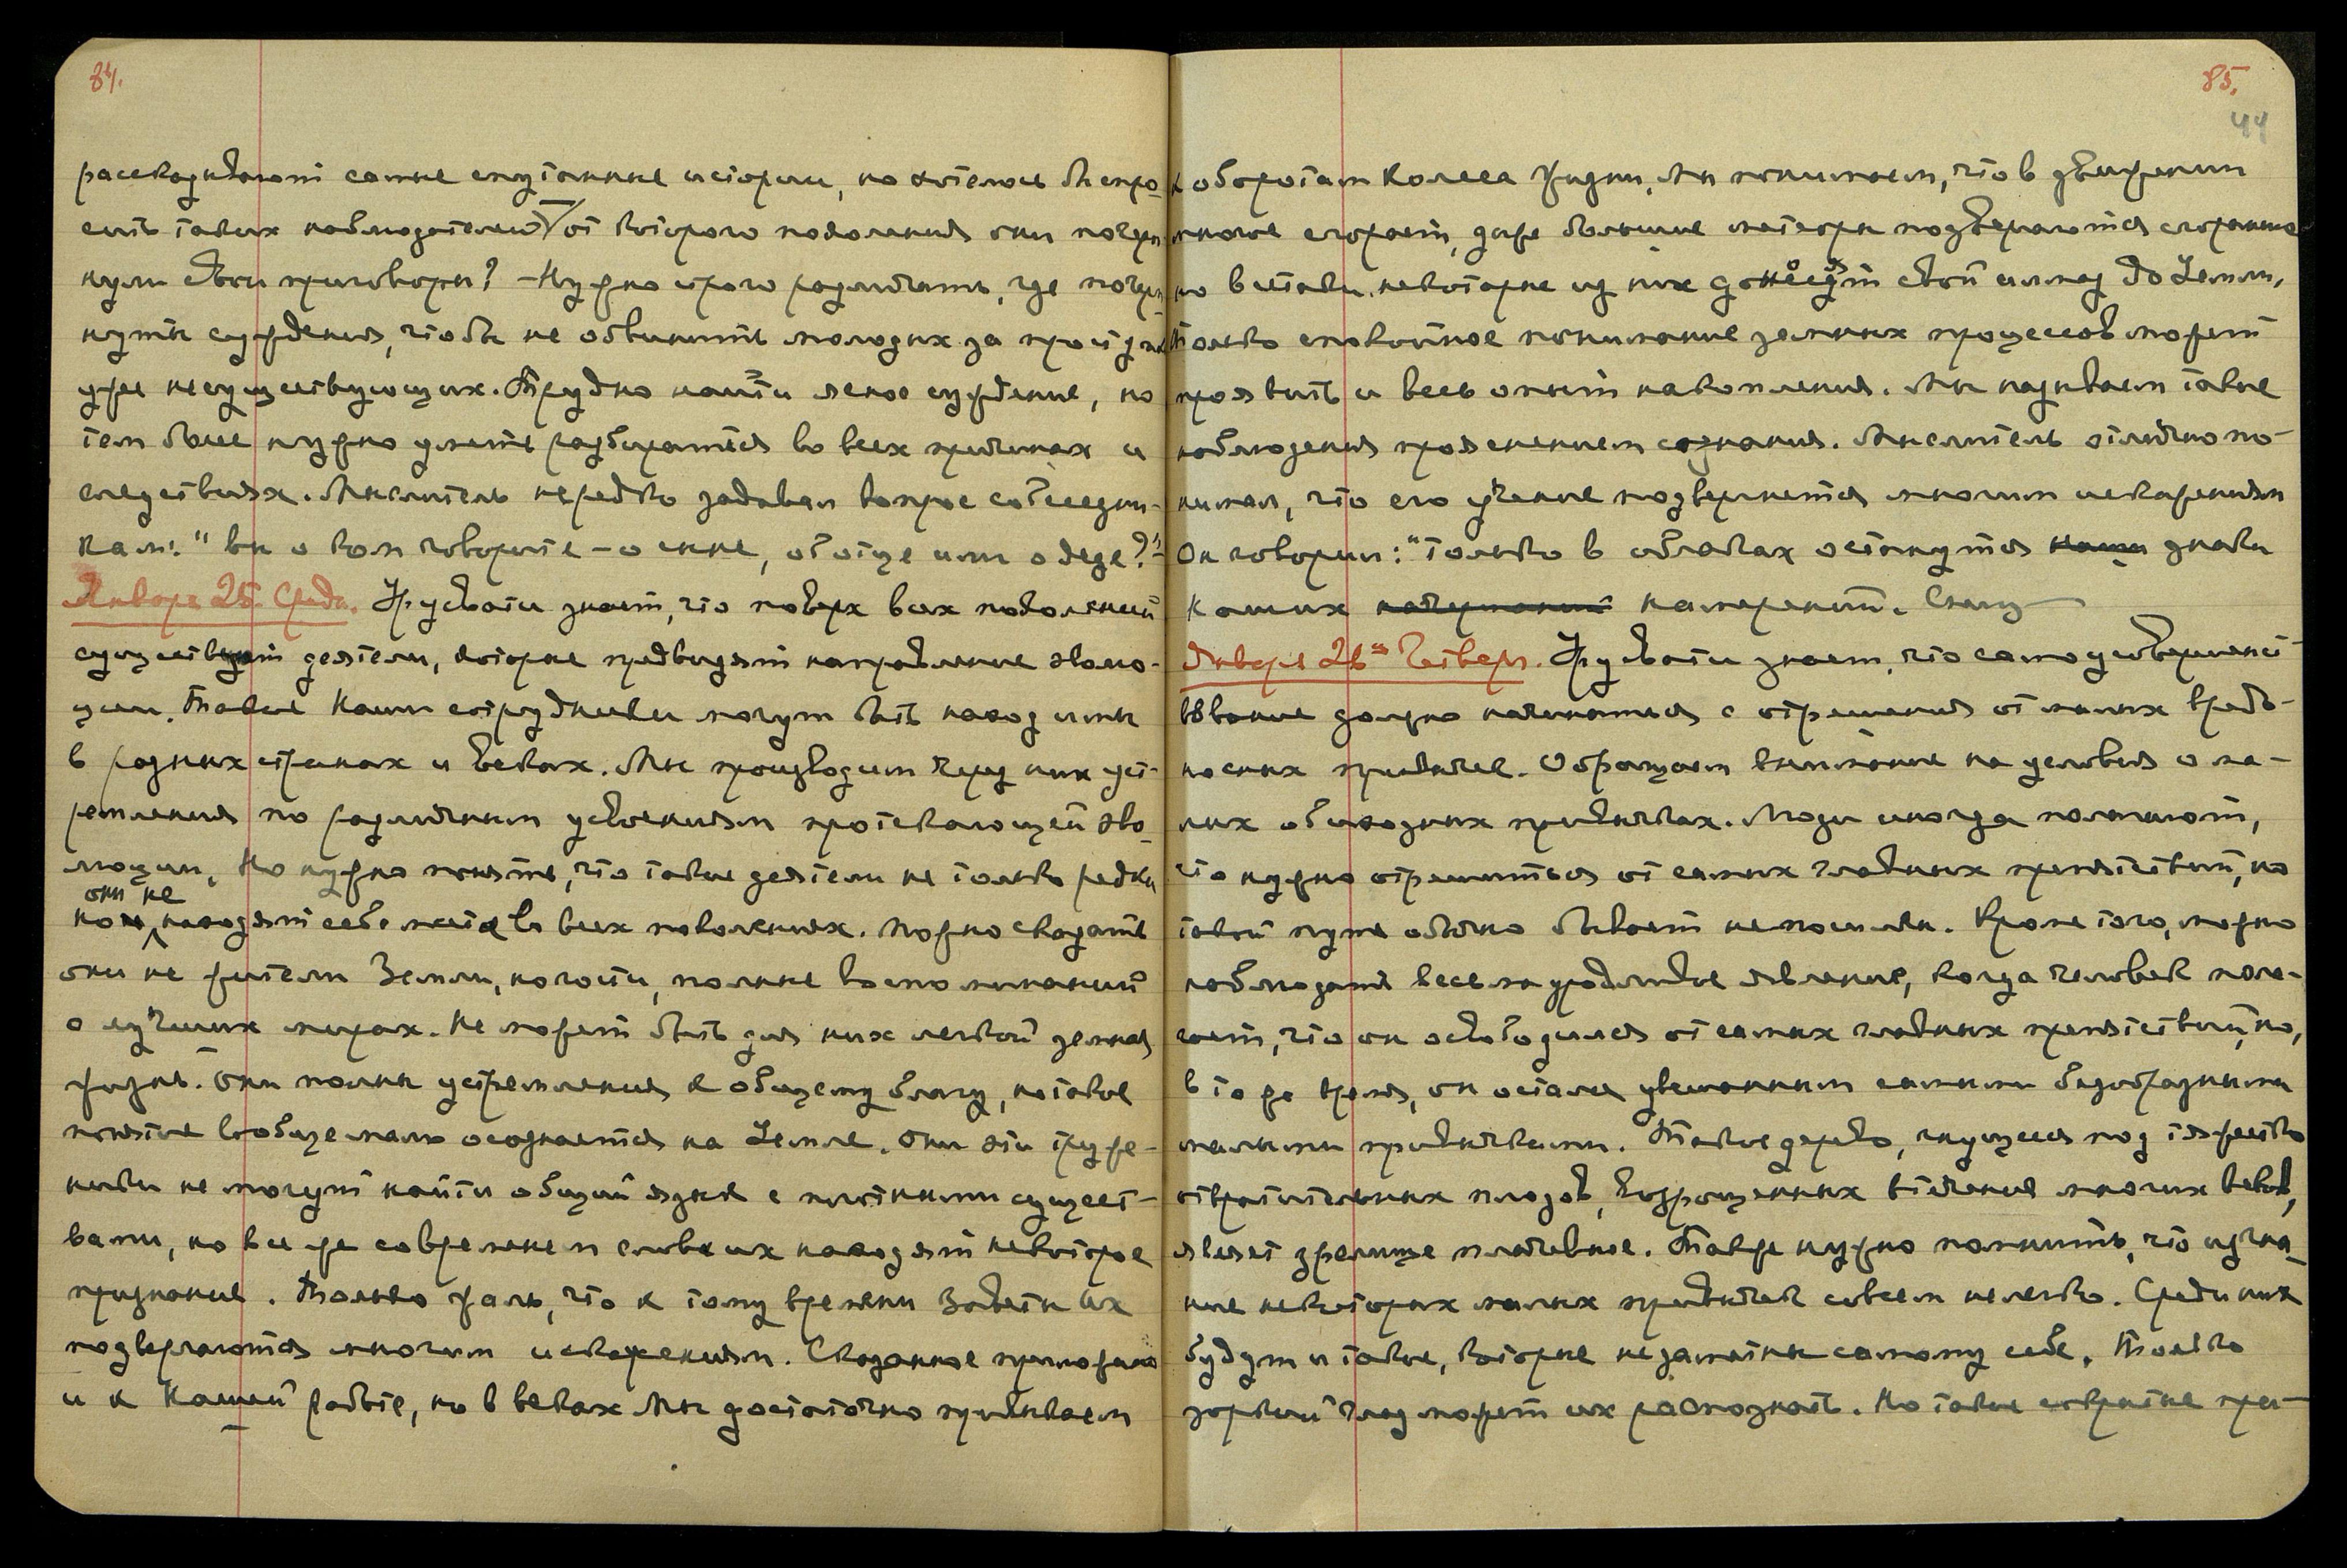 84.
рассказывают самые спутанные истории, но хотелось бы спро-
сить таких наблюдателей от которого поколения они почерп-
нули свои приговоры? – Нужно строго различать, где почерп-
нуты суждения, чтобы не обвинить молодых за прост
уже несуществующих. Трудно найти ясное суждение, но
тем более нужно уметь разбираться во всех причинах и
следствиях. Мыслитель нередко задавал вопрос собеседни-
кам: "вы о ком говорите – о сыне, об отце или о деде?"
Января 25. Среда. Урусвати знает, что поверх всех поколений
существуют деятели, которые предвидят направление эволю-
ции. Такие Наши сотрудники могут быть находимы
в разных странах и веках. Мы производим через них уст-
ремления по различным усвоениям протекающей эво-
люции. Но нужно понять, что такие деятели не только редки
они не
но находят себе места во всех поколениях. Можно сказать
они не жители Земли, но гости, полные воспоминаний
о лучших мирах. Не может быть для них легкой земная
жизнь. Они полны устремления к общему благу, но такое
понятие вообще мало осознается на Земле. Они эти труже-
ники не могут найти общий язык с плотными сущест-
вами, но все же со временем слова их находят некоторое
признание. Только жаль, что к тому времени Заветы их
подвергаются многим искажениям. Сказанное приложимо
и к Нашей работе, но в веках Мы достаточно привыкаем
85.
44
к оборотам Колеса Жизни. Мы понимаем, что в движении
многое сгорает, даже большие метеоры подвергаются сгоранию
но все таки некоторые из них донесут свой алмаз до Земли.
Только спокойное понимание земных процессов может
проявить и весь опыт накопления. Мы называем такие
наблюдения прояснением сознания. Мыслитель отлично по-
нимал, что его учение подвергнется многим искажениям
Он говорил: "только в облаках останутся наши знаки
наших начертаний намерений. Слышу
Января 26го Четверг. Урусвати знает, что самоусовершенст-
вование должно начинаться с отрешения от малых вредо-
носных привычек. Обращаем внимание на условия о ма-
лых обиходных привычках. Люди иногда полагают,
что нужно отрешиться от самых главных препятствий, но
такой путь обычно бывает непосилен. Кроме того, можно
наблюдать весьма уродливое явление, когда человек пола-
гает, что он освободился от самых главных препятствий, но,
в то же время, он остался увешанным самыми безобразными
малыми привычками. Такое дерево, гнущееся под тяжестью
отвратительных плодов, возрощенных в течения многих веков,
являет зрелище плачевное. Также нужно помнить, что изгна-
ние некоторых малых привычек совсем нелегко. Среди них
будут и такие, которые незаметны самому себе. Только
зоркий глаз может их распознать. Но такие сокрытые при-